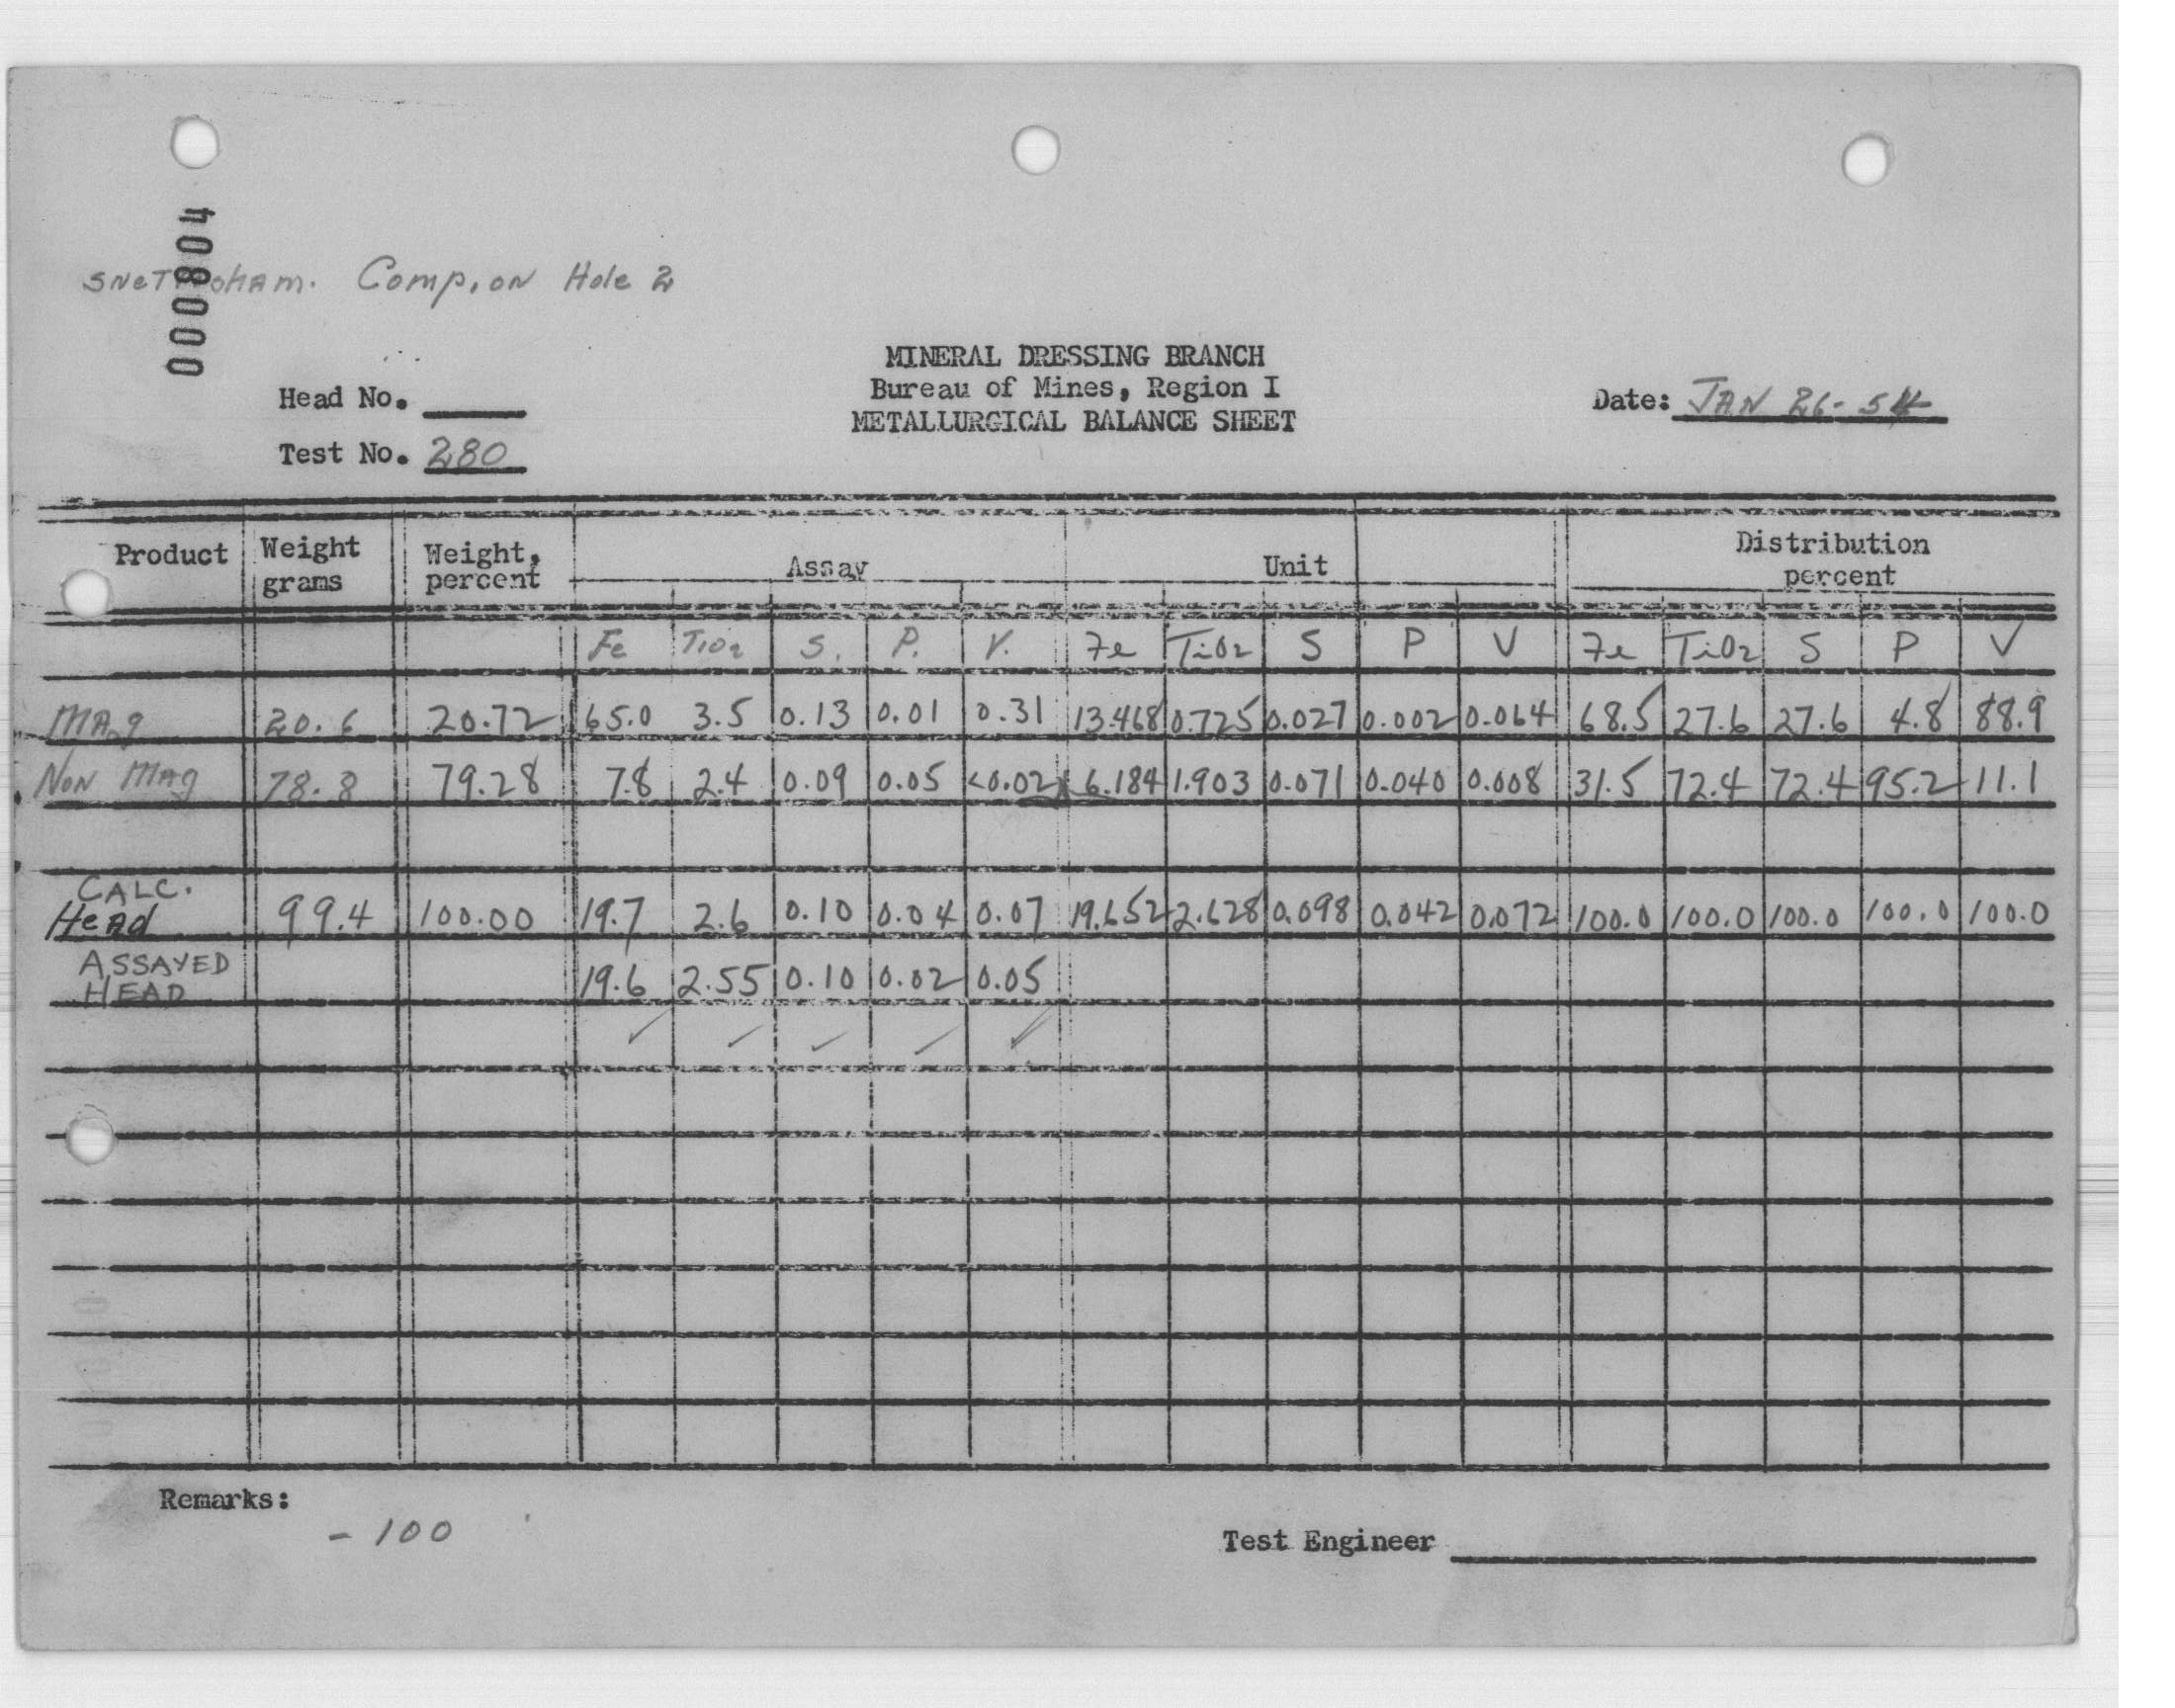 000804
SNETTISHAM. Comp, ON Hole 2
MINERAL DRESSING BRANCH
Head No. Bureau of Mines, Region I Date: JAN 26-54
METALLURGICAL BALANCE SHEET
Test No. 280
Product Weight grams Weight, percent Assay Unit Distribution percent
Fe TiO2 S. P. V. Fe TiO2 S P V Fe TiO2 S P V
MAg 20.6 20.72 65.0 3.5 0.13 0.01 0.31 13.468 0.725 0.027 0.002 0.064 68.5 27.6 27.6 4.8 88.9
NON MAg 78.8 79.28 7.8 2.4 0.09 0.05 <0.02 6.184 1.903 0.071 0.040 0.008 31.5 72.4 72.4 95.2 11.1
CALC. Head 99.4 100.00 19.7 2.6 0.10 0.04 0.07 19.652 2.628 0.098 0.042 0.072 100.0 100.0 100.0 100.0 100.0
ASSAYED HEAD 19.6 2.55 0.10 0.02 0.05
Remarks:
- 100
Test Engineer